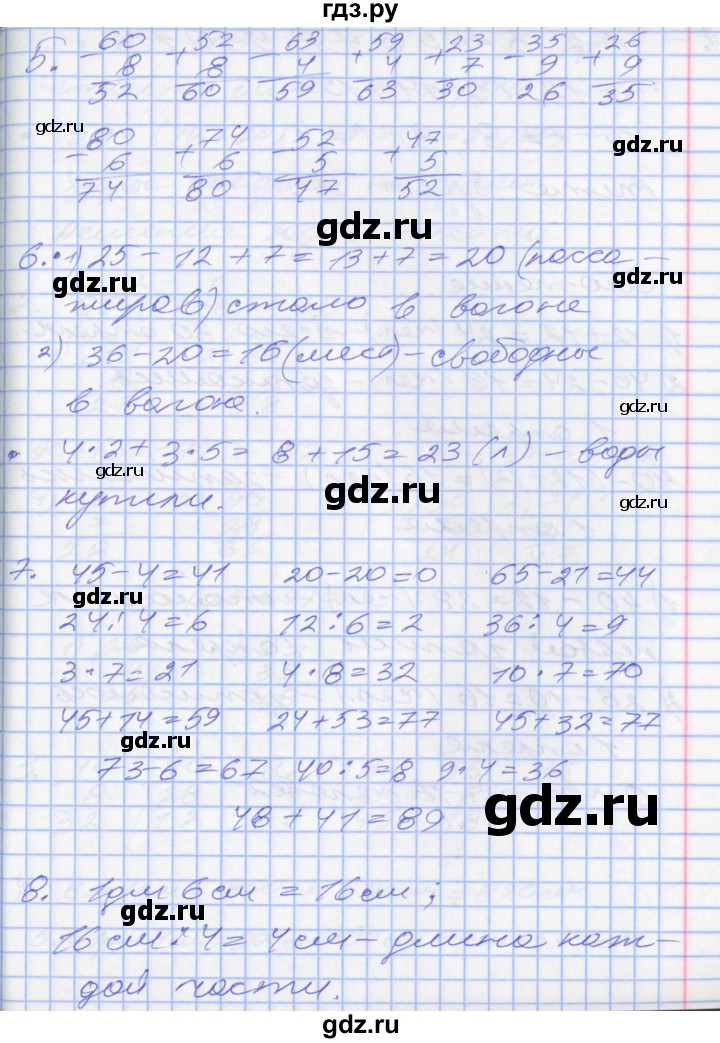 гдз.ру
5. 60 52 63 59 23 35 26
- 8 + 8 - 4 + 4 + 7 - 9 + 9
52 60 59 63 30 26 35
gdz.ru gdz.ru
80 74 52 47
- 6 + 6 - 5 + 5
74 80 47 52
gdz.ru
6. • 1) 25 - 12 + 7 = 13 + 7 = 20 (пасса-
gdz.ru
жиров) стало в вагоне
gdz.ru
2) 36 - 20 = 16 (мест) - свободны
в вагоне.
gdz.ru
• 4 · 2 + 3 · 5 = 8 + 15 = 23 (л) - воды
gdz.ru
купили.
gdz.ru gdz.ru
7. 45 - 4 = 41 20 - 20 = 0 65 - 21 = 44
gdz.ru gdz.ru
24 : 4 = 6 12 : 6 = 2 36 : 4 = 9
3 · 7 = 21 4 · 8 = 32 10 · 7 = 70
45 + 14 = 59 24 + 53 = 77 45 + 32 = 77
gdz.ru
73 - 6 = 67 40 : 5 = 8 9 · 4 = 36
48 + 41 = 89
gdz.ru
8. 1 дм 6 см = 16 см;
gdz.ru
16 см : 4 = 4 см - длина каж-
gdz.ru
дой части.
gdz.ru gdz.ru
gdz.ru